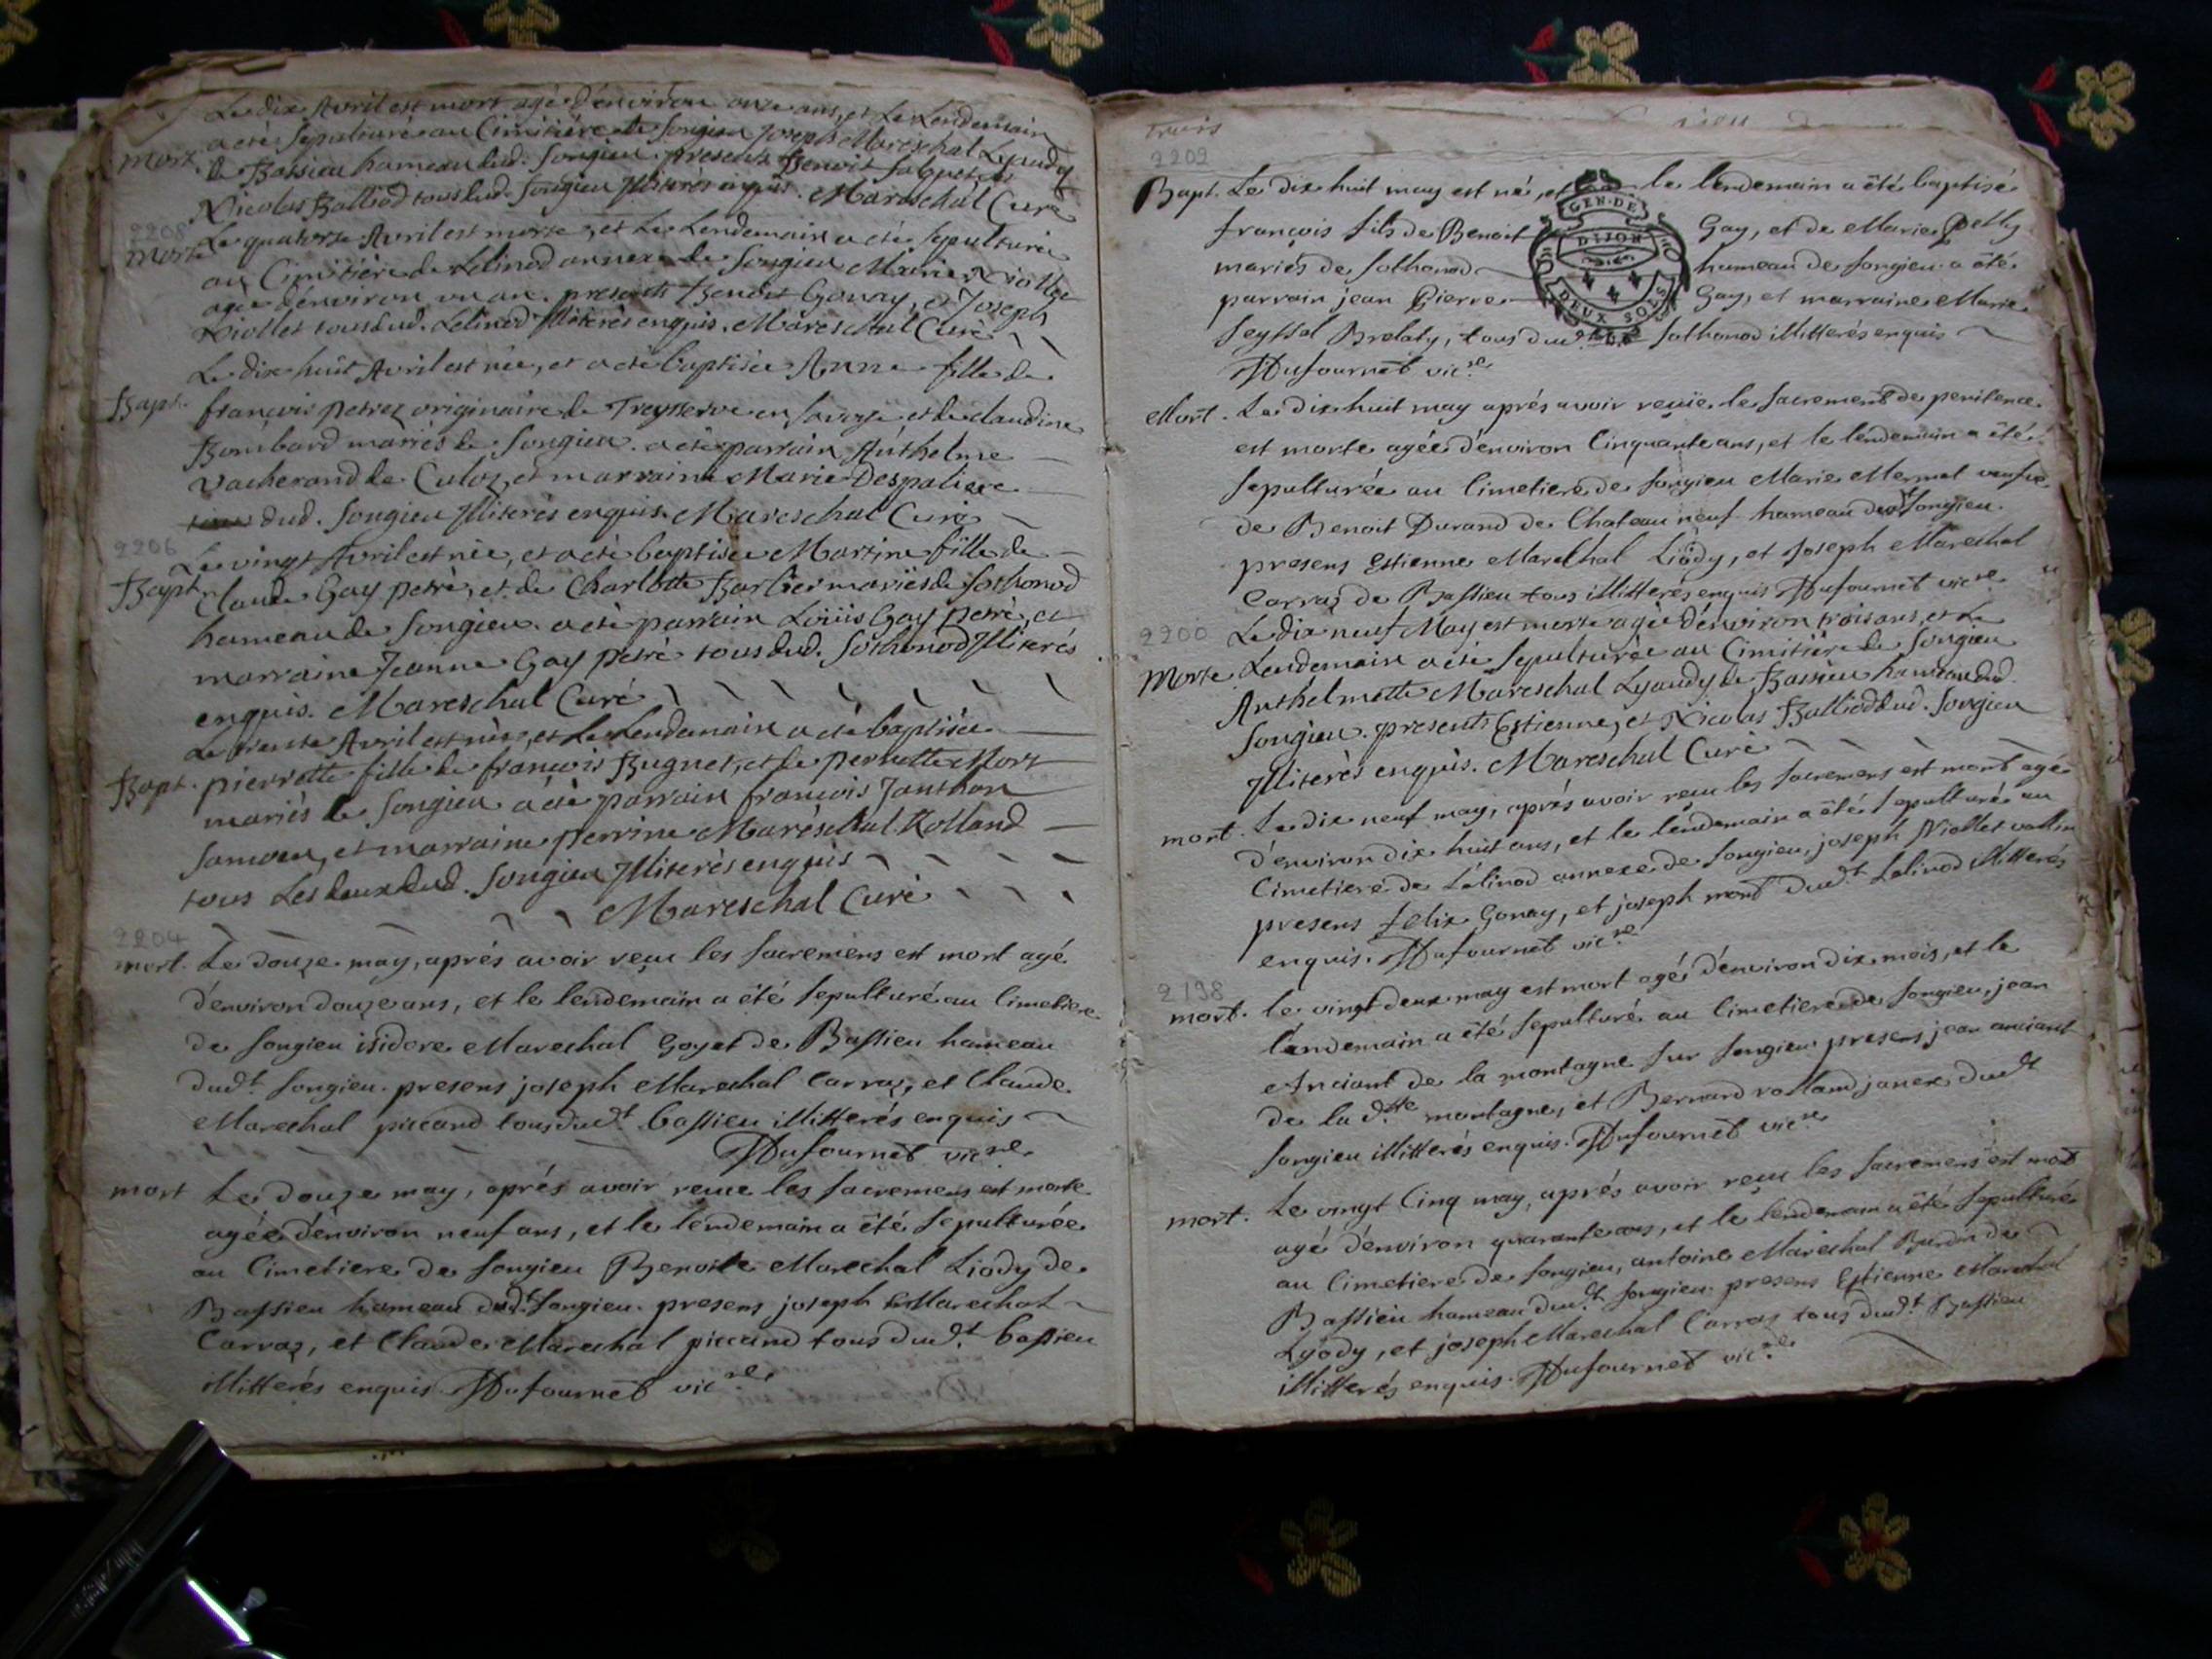 Le dix Avril est mort agé d'environ onze ans, et Le Lendemain
mort. a eté sepulturé au Cimitiére de Songieu Joseph Mareschal Lyaudy
de Bassieu hameau dud. Songieu. presents Benoit
Nicolas Balliod tous dud. Songieu Illiterés enquis. Mareschal Curé
2208
morte Le quatorze Avril est morte, et Le Lendemain a eté sepulturée
au Cimitiére de Lilinod annexe de Songieu Marie Niollet
agée d'environ un an. presents Benoit Gonay, et Joseph
Niollet tous dud. Lilinod Illiterés enquis. Mareschal Curé
Le dix huit Avril est née, et a eté baptisée Anne fille de
Bapt. françois petrez originaire de Treyserve en Savoye et de claudine
Bombard mariés de Songieu. a eté parrain Anthelme
Vacherand de Culoz, et marraine Marie Despaliere
dud. Songieu Illiterés enquis. Mareschal Curé
2206
Le vingt Avril est née, et a eté baptisée Martine fille de
Bapt. Claude Gay petré, et de Charlotte Barbier mariés de Sothonod
hameau de Songieu. a eté parrain Loüis Gay petré, et
marraine Jeanne Gay petré tous dud. Sothonod Illiterés
enquis. Mareschal Curé
Le trente Avril est née, et Le Lendemain a eté baptisée
Bapt. pierrette fille de françois Bugnet, et de pernette Mort
mariés de Songieu a eté parrain françois Janthon
Samoen, et marraine perrine Mareschal Rolland
tous Les deux dud. Songieu Illiterés enquis
Mareschal Curé
2204
mort. Le douze may, aprés avoir reçu les sacremens est mort agé
d'environ douze ans, et le lendemain a été sepulturé au Cimetiere
de Songieu isidore Mareschal Goyet de Bassieu hameau
dudt. Songieu. presens joseph Mareschal Carraz, et Claude
Mareschal piccand tous dudt. bassieu illitterés enquis
Dufournet vicre.
mort Le douze may, aprés avoir reçue les sacremens est morte
agée d'environ neuf ans, et le lendemain a été sepulturée
au Cimetiere de Songieu Benoite Mareschal Liody de
Bassieu hameau dudt. Songieu. presens joseph Mareschal
Carraz, et Claude Mareschal piccand tous dudt. bassieu
illitterés enquis. Dufournet vicre.
trois
2202
Bapt. Le dix huit may est né, et le lendemain a été baptisé
françois fils de Benoit Gay, et de Marie petty
mariés de Sothonod hameau de Songieu. a été
parrain jean pierre Gay, et marraine Marie
Seyssel Brelaty, tous dudt. Sothonod illitterés enquis
GEN. DE
DIJON
DEUX SOLS
Dufournet vicre.
Mort. Le dix huit may aprés avoir reçüe le sacrement de penitence
est morte agée d'environ Cinquante ans, et le lendemain a été
sepulturée au Cimetiere de Songieu Marie Mermet veufve
de Benoit Durand de Chateauneuf hameau dudt Songieu.
presens Estienne Mareschal Liody, et Joseph Mareschal
Carraz de Bassieu tous illitterés enquis Dufournet vicre.
2200
Le dix neuf May est morte agée d'environ trois ans, et Le
Morte Lendemain a eté sepulturée au Cimitiére de Songieu
Anthelmette Mareschal Lyaudy de Bassieu hameau dud.
Songieu. presents Estienne, et Nicolas Balliod dud. Songieu
Illiterés enquis. Mareschal Curé
mort. Le dix neuf may, aprés avoir reçu les sacremens est mort agé
d'environ dix huit ans, et le lendemain a été sepulturé au
Cimetiere de Lilinod annexe de Songieu, joseph Niollet vallin
presens felix Gonay, et joseph mort dudt. Lilinod illitterés
enquis. Dufournet vicre.
2198
mort. le vingt deux may est mort agé d'environ dix mois, et le
lendemain a été sepulturé au Cimetiere de Songieu, jean
Anciant de la montagne sur Songieu. presens jean anciant
de la dtte montagne, et Bernard rolland janex dudt
Songieu illitterés enquis. Dufournet vicre.
mort. Le vingt Cinq may, aprés avoir reçu les sacremens est mort
agé d'environ quarante ans, et le lendemain a été sepulturé
au Cimetiere de Songieu, antoine Mareschal Burdin de
Bassieu hameau dudt. Songieu. presens Estienne Mareschal
Lyody, et joseph Mareschal Carraz tous dudt. Bassieu
illitterés enquis. Dufournet vicre.